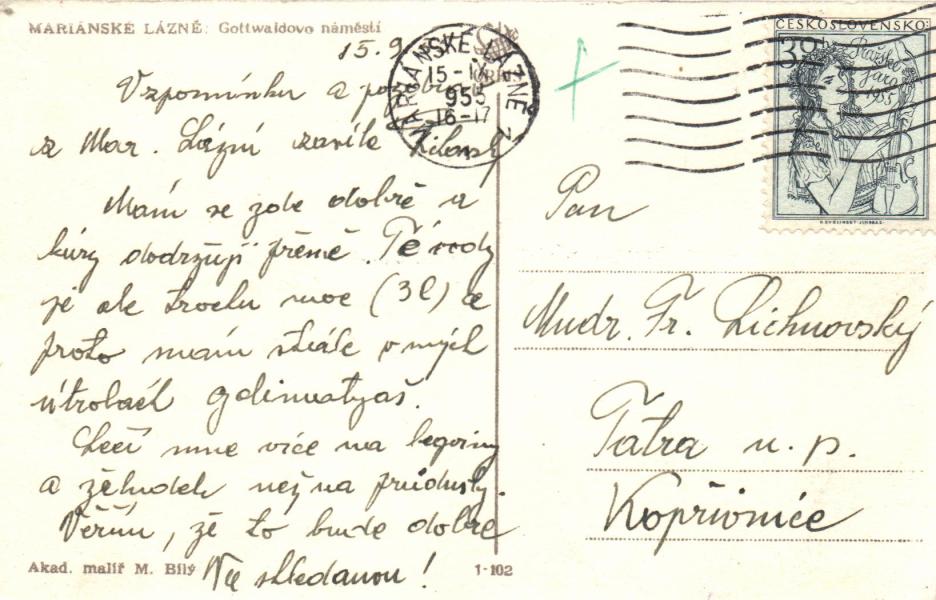 MARIÁNSKÉ LÁZNĚ: Gottwaldovo náměstí
15.9.
Vzpomínku a
z Mar. Lázní zasílá
Mám se zde dobře a
kúry dodržuji přísně. Té vody
je ale trochu moc (3l) a
proto mám stále v mých
útrobách
Léčí mne více na
a žaludek než na průdušky.
Věřím, že to bude dobré
Na shledanou!
Akad. malíř M. Bílý
1-102
MARIÁNSKÉ LÁZNĚ 1
15-IX
955
16-17
ČESKOSLOVENSKO
30h
Pražské
jaro
1955
Pan
Mudr. Fr. Lichnovský
Tatra n. p.
Kopřivnice